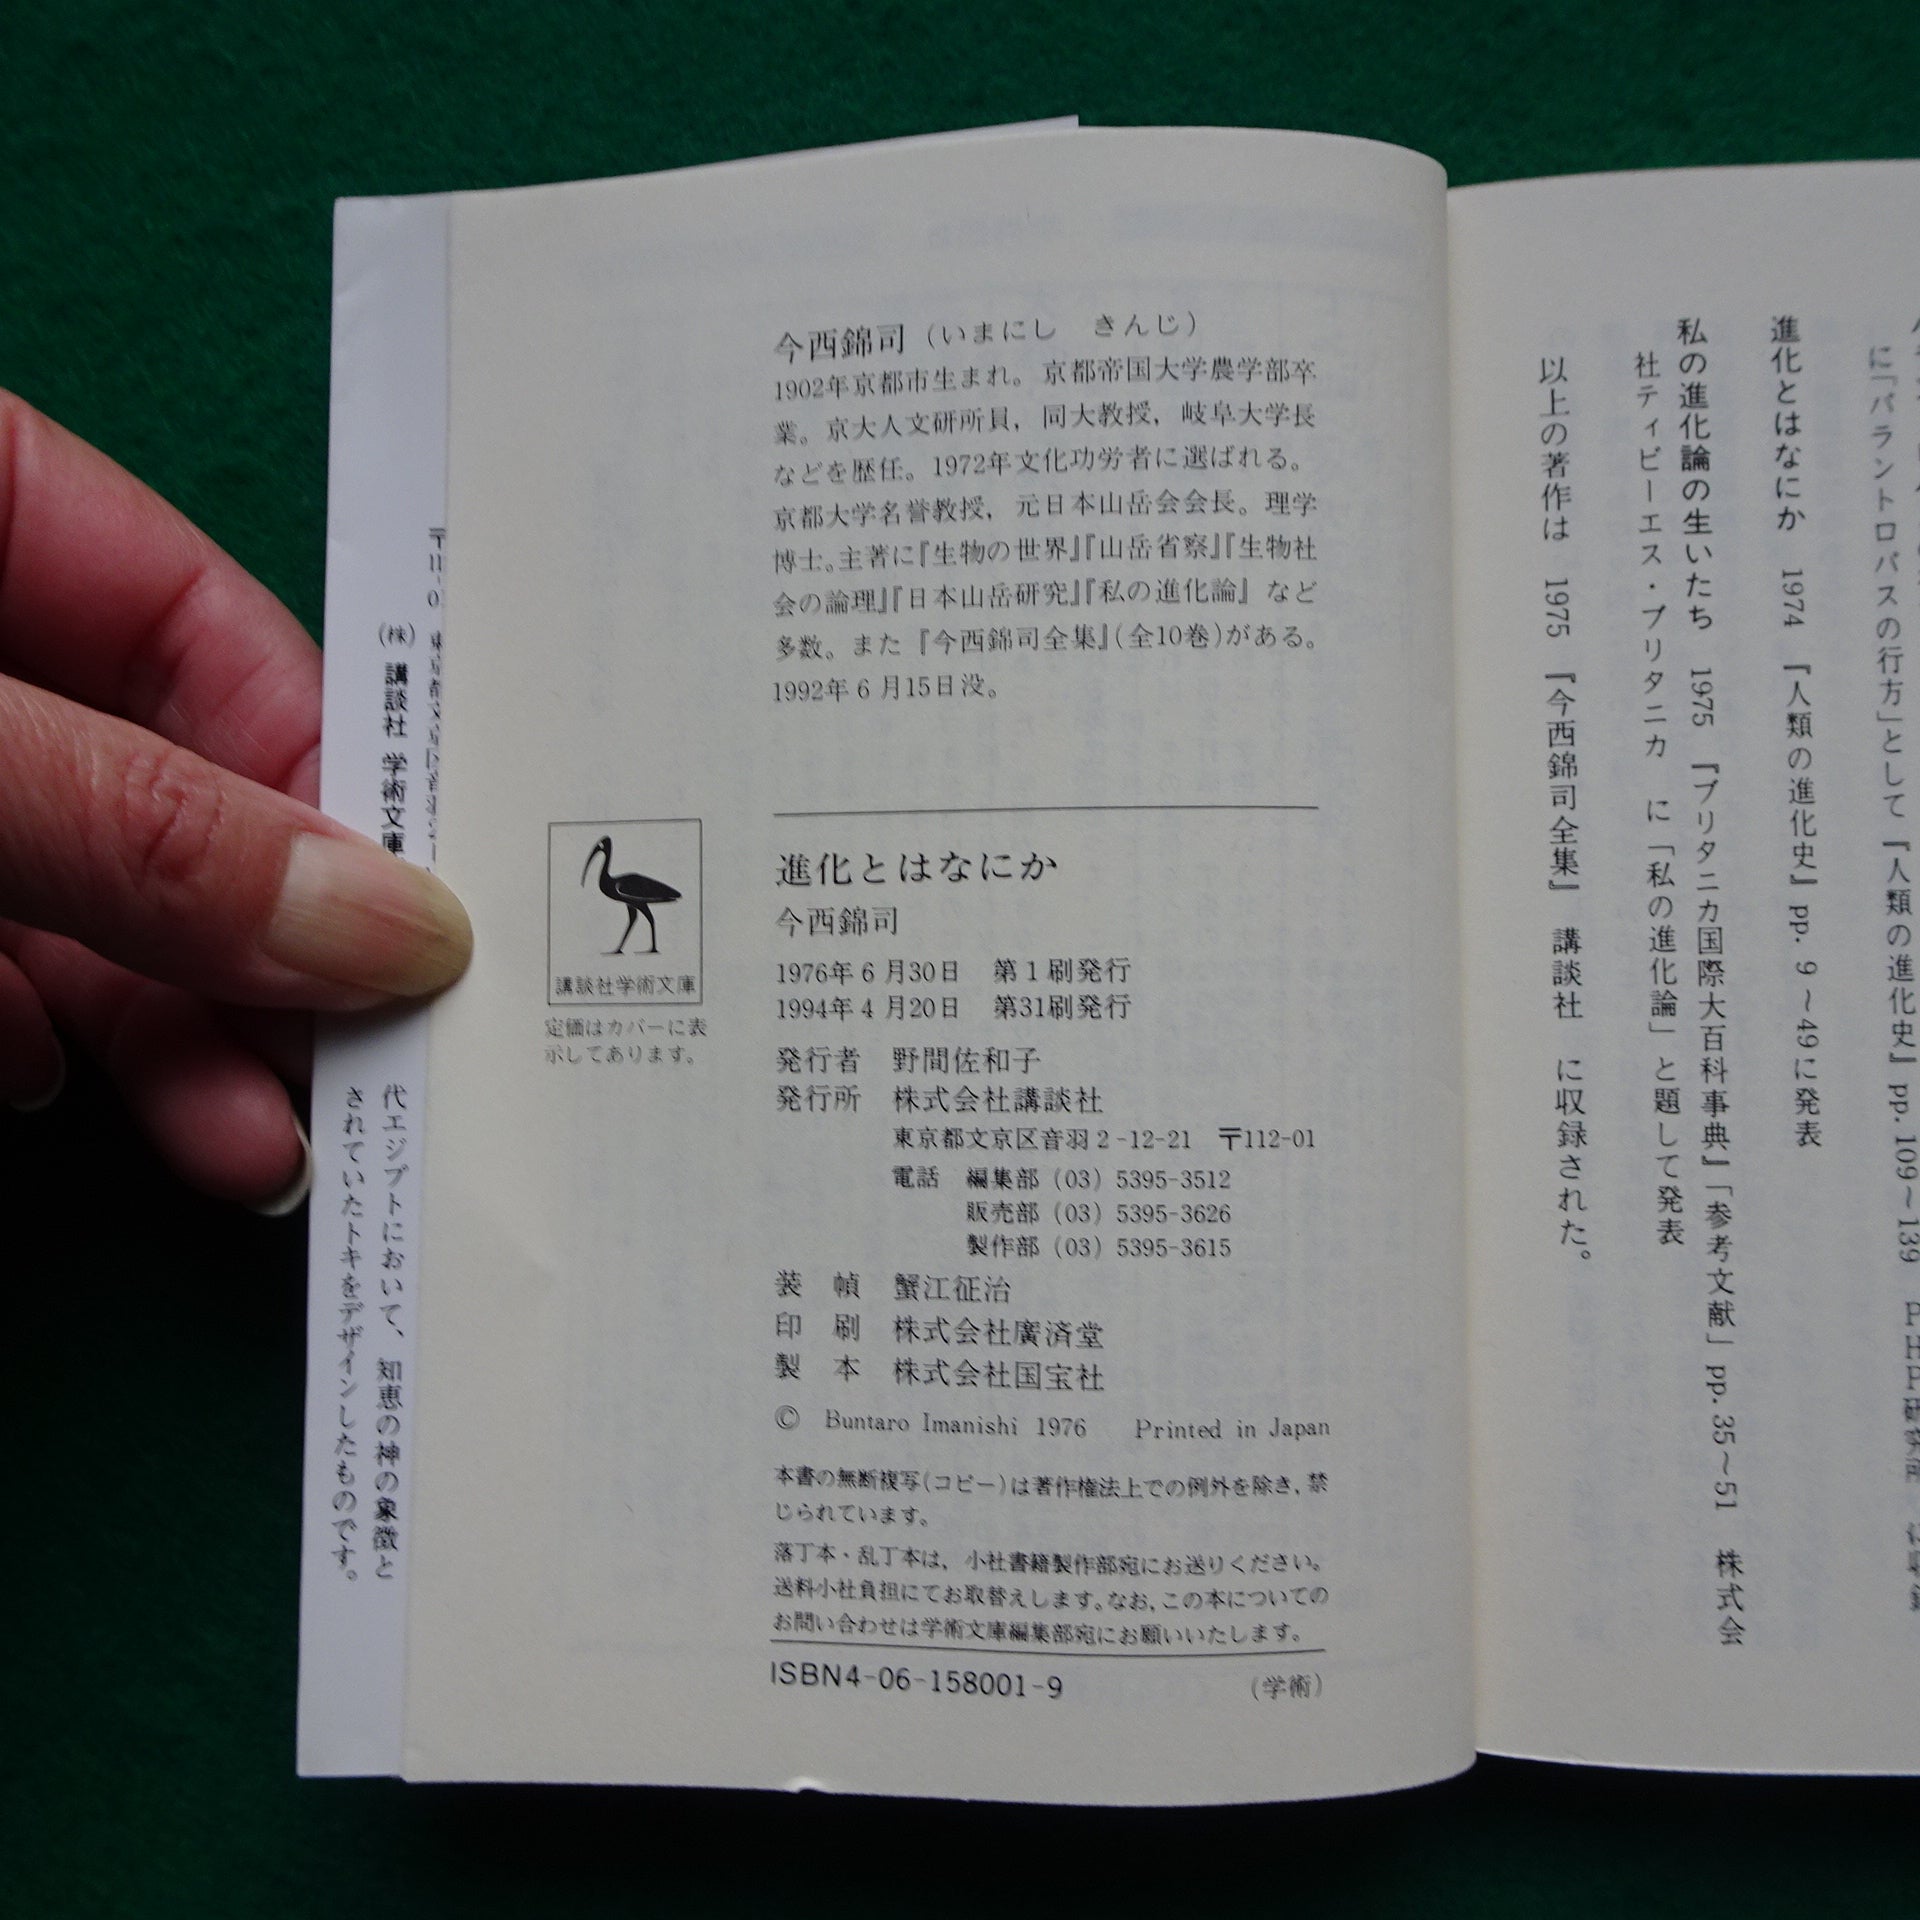 に「パラントロパスの行方」として『人類の進化史』pp. 109～139 PHP研究所
進化とはなにか 1974 『人類の進化史』pp. 9～49に発表
私の進化論の生いたち 1975 『ブリタニカ国際大百科事典』「参考文献」pp. 35～51 株式会
社ティビーエス・ブリタニカ に「私の進化論」と題して発表
以上の著作は 1975 『今西錦司全集』 講談社 に収録された。
今西錦司（いまにし きんじ）
1902年京都市生まれ。京都帝国大学農学部卒
業。京大人文研所員，同大教授，岐阜大学長
などを歴任。1972年文化功労者に選ばれる。
京都大学名誉教授，元日本山岳会会長。理学
博士。主著に『生物の世界』『山岳省察』『生物社
会の論理』『日本山岳研究』『私の進化論』など
多数。また『今西錦司全集』（全10巻）がある。
1992年6月15日没。
講談社学術文庫
定価はカバーに表
示してあります。
進化とはなにか
今西錦司
1976年6月30日 第1刷発行
1994年4月20日 第31刷発行
発行者 野間佐和子
発行所 株式会社講談社
東京都文京区音羽2-12-21 〒112-01
電話 編集部（03）5395-3512
販売部（03）5395-3626
製作部（03）5395-3615
装 幀 蟹江征治
印 刷 株式会社廣済堂
製 本 株式会社国宝社
© Buntaro Imanishi 1976 Printed in Japan
本書の無断複写(コピー)は著作権法上での例外を除き，禁
じられています。
落丁本・乱丁本は，小社書籍製作部宛にお送りください。
送料小社負担にてお取替えします。なお，この本についての
お問い合わせは学術文庫編集部宛にお願いいたします。
ISBN4-06-158001-9 （学術）
〒11 0 東京都文京区音羽
（株）講談社 学術文庫
代エジプトにおいて、知恵の神の象徴と
されていたトキをデザインしたものです。